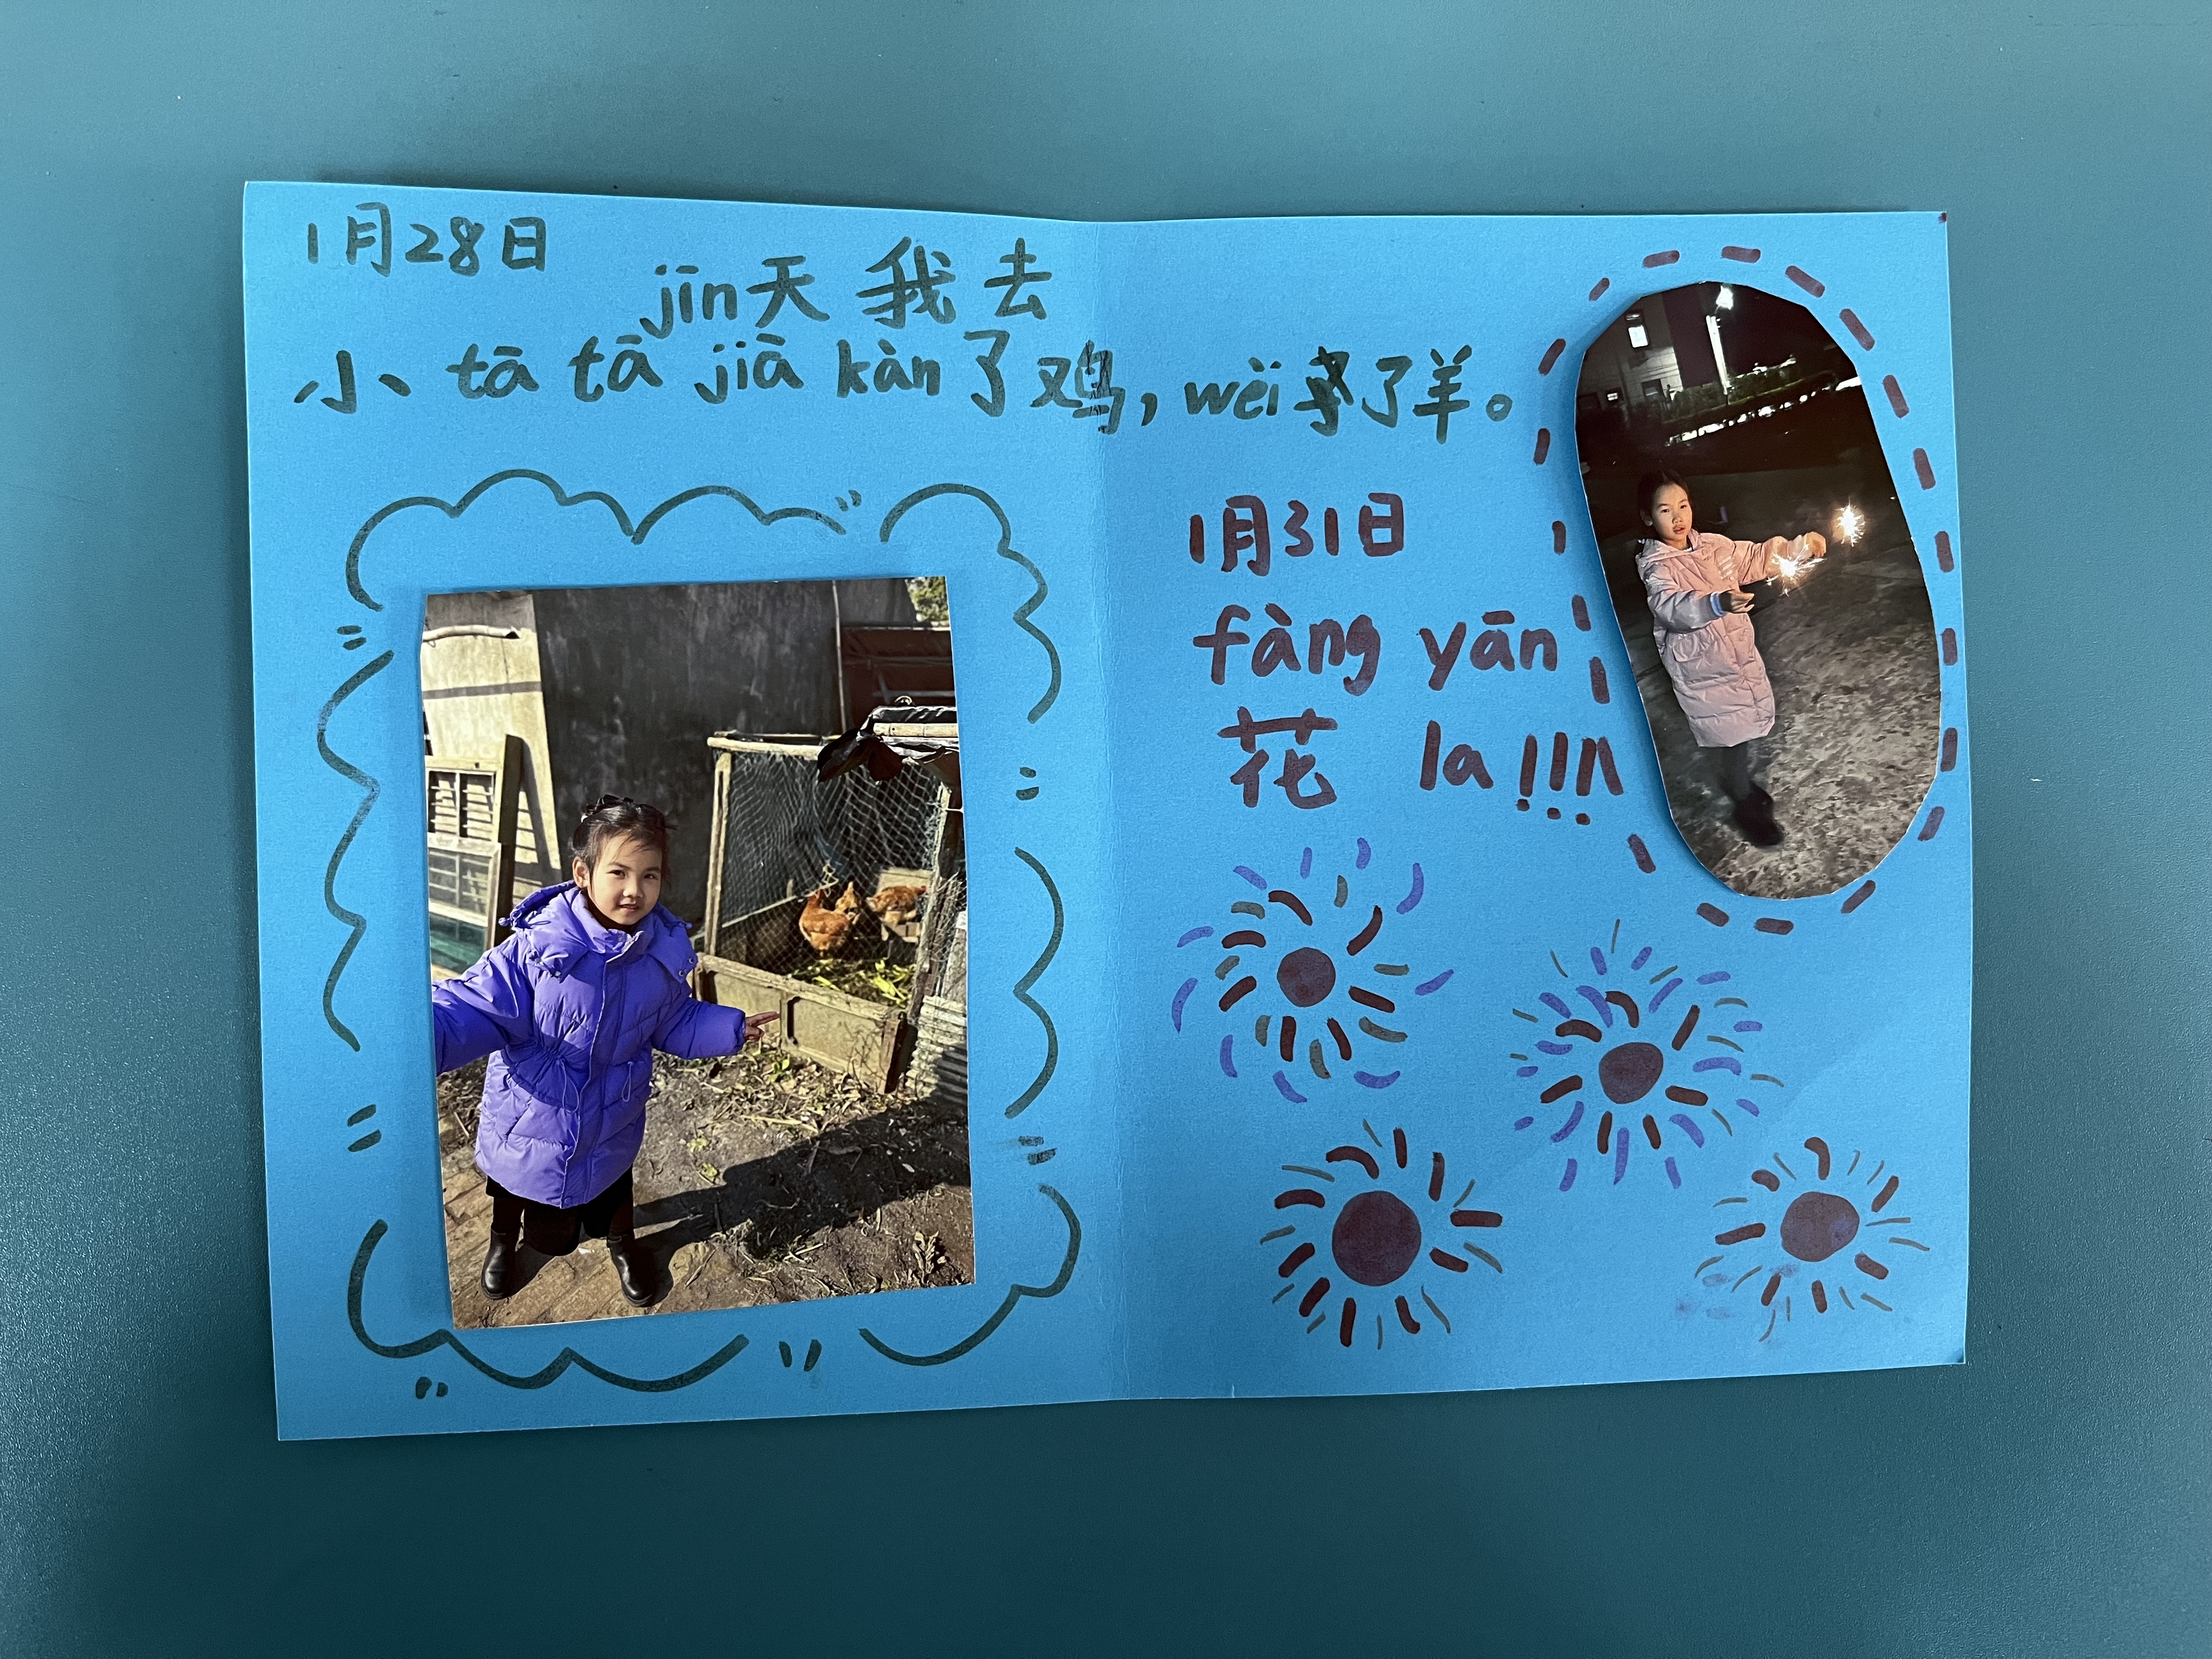 1月28日
jīn天我去
小 tā tā jiā kàn了鸡，wèi了羊。
1月31日
fàng yān
花 la!!!